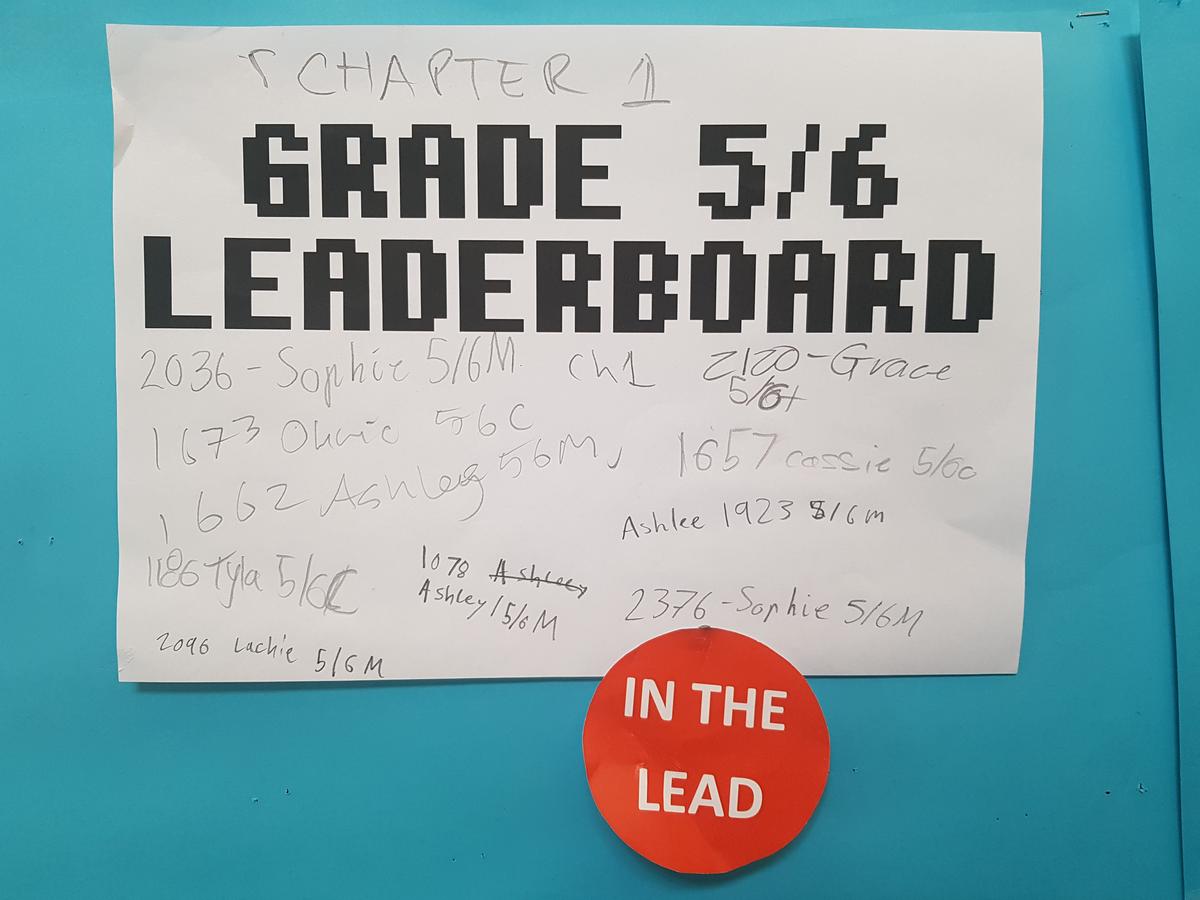 CHAPTER 1
GRADE 5/6
LEADERBOARD
2036 - Sophie 5/6M ch1
2120 - Grace
5/6
1673 56C
1662 Ashley 56M
1657 cassie 5/6c
Ashlee 1923 5/6M
1186 Tyla 5/6C
1078 Ashley
Ashley/5/6M
2376 - Sophie 5/6M
2096 Lachie 5/6M
IN THE
LEAD